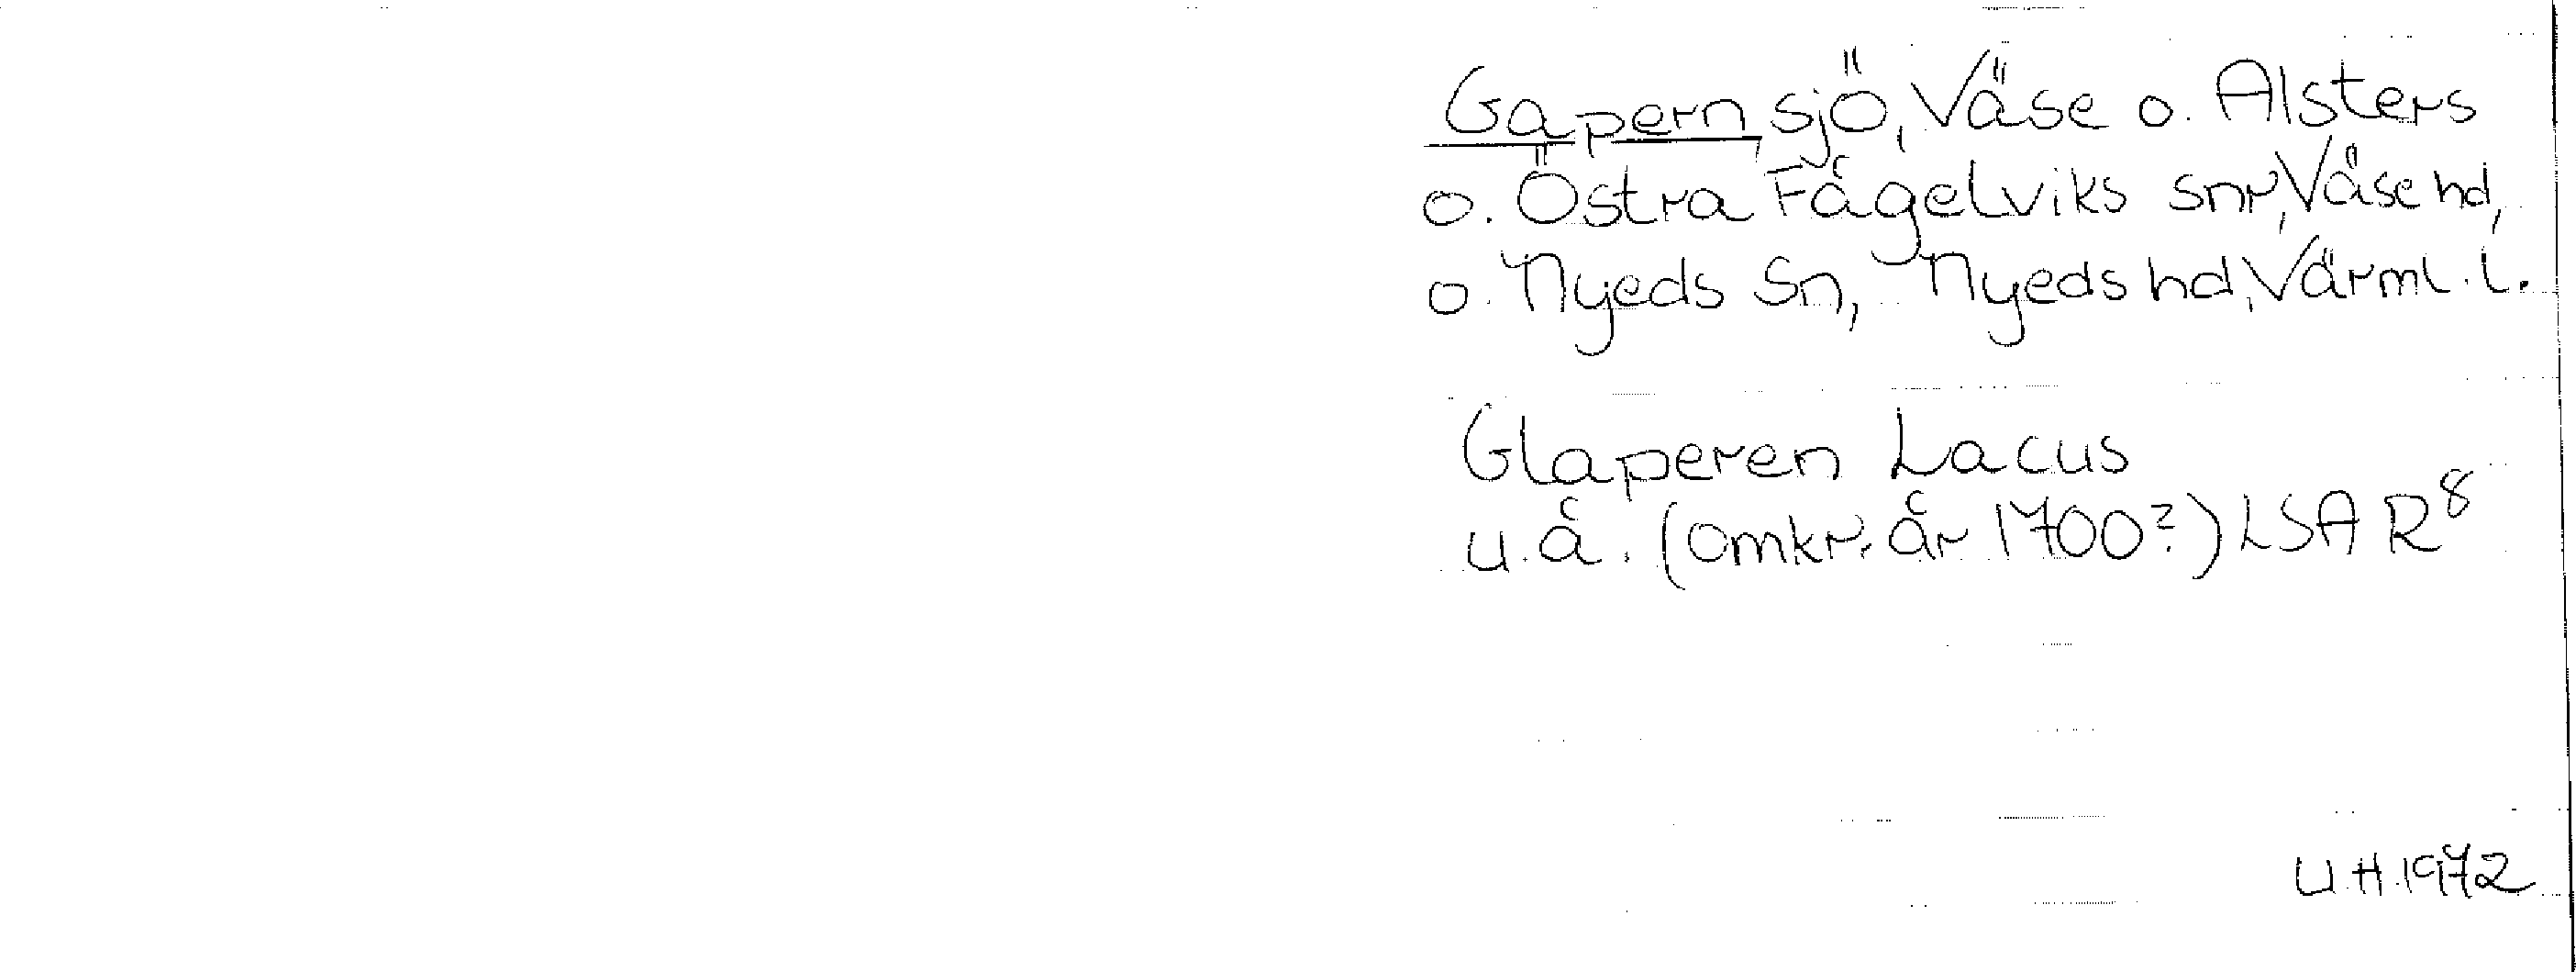 Gapern sjö, Väse o. Alsters
o. Östra Fågelviks snr, Väse hd,
o. Nyeds Sn, Nyeds hd, Värml. l.
Glaperen Lacus
u.å. (omkr. år 1700?) LSA R⁸
U.H. 1972